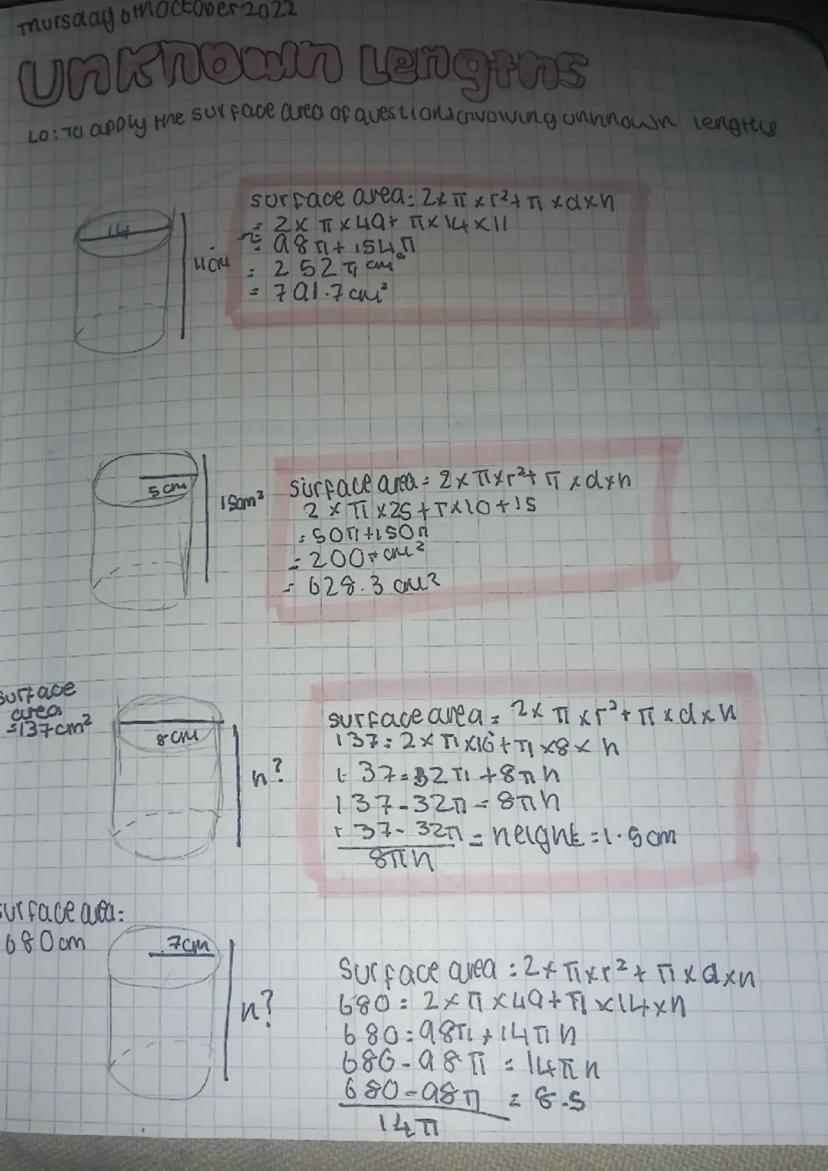 Thursday 6th October 2022
Unknown Lengths
LO: To apply the surface area of questions involving unknown lengths
14
11cm
surface area = 2 × π × r² + π × d × h
= 2 × π × 49 + π × 14 × 11
= 98π + 154π
= 252π cm²
= 791.7 cm²
5cm
15cm²
surface area = 2 × π × r² + π × d × h
2 × π × 25 + π × 10 + 15
= 50π + 150π
= 200π cm²
= 628.3 cm²
surface
area
= 137cm²
8cm
h?
surface area = 2 × π × r² + π × d × h
137 = 2 × π × 16 + π × 8 × h
137 = 32π + 8πh
137 - 32π = 8πh
137 - 32π = height = 1.5cm
8πh
surface area:
680cm
7cm
h?
surface area = 2 × π × r² + π × d × h
680 = 2 × π × 49 + π × 14 × h
680 = 98π + 14πh
680 - 98π = 14πh
680 - 98π = 8.5
14π